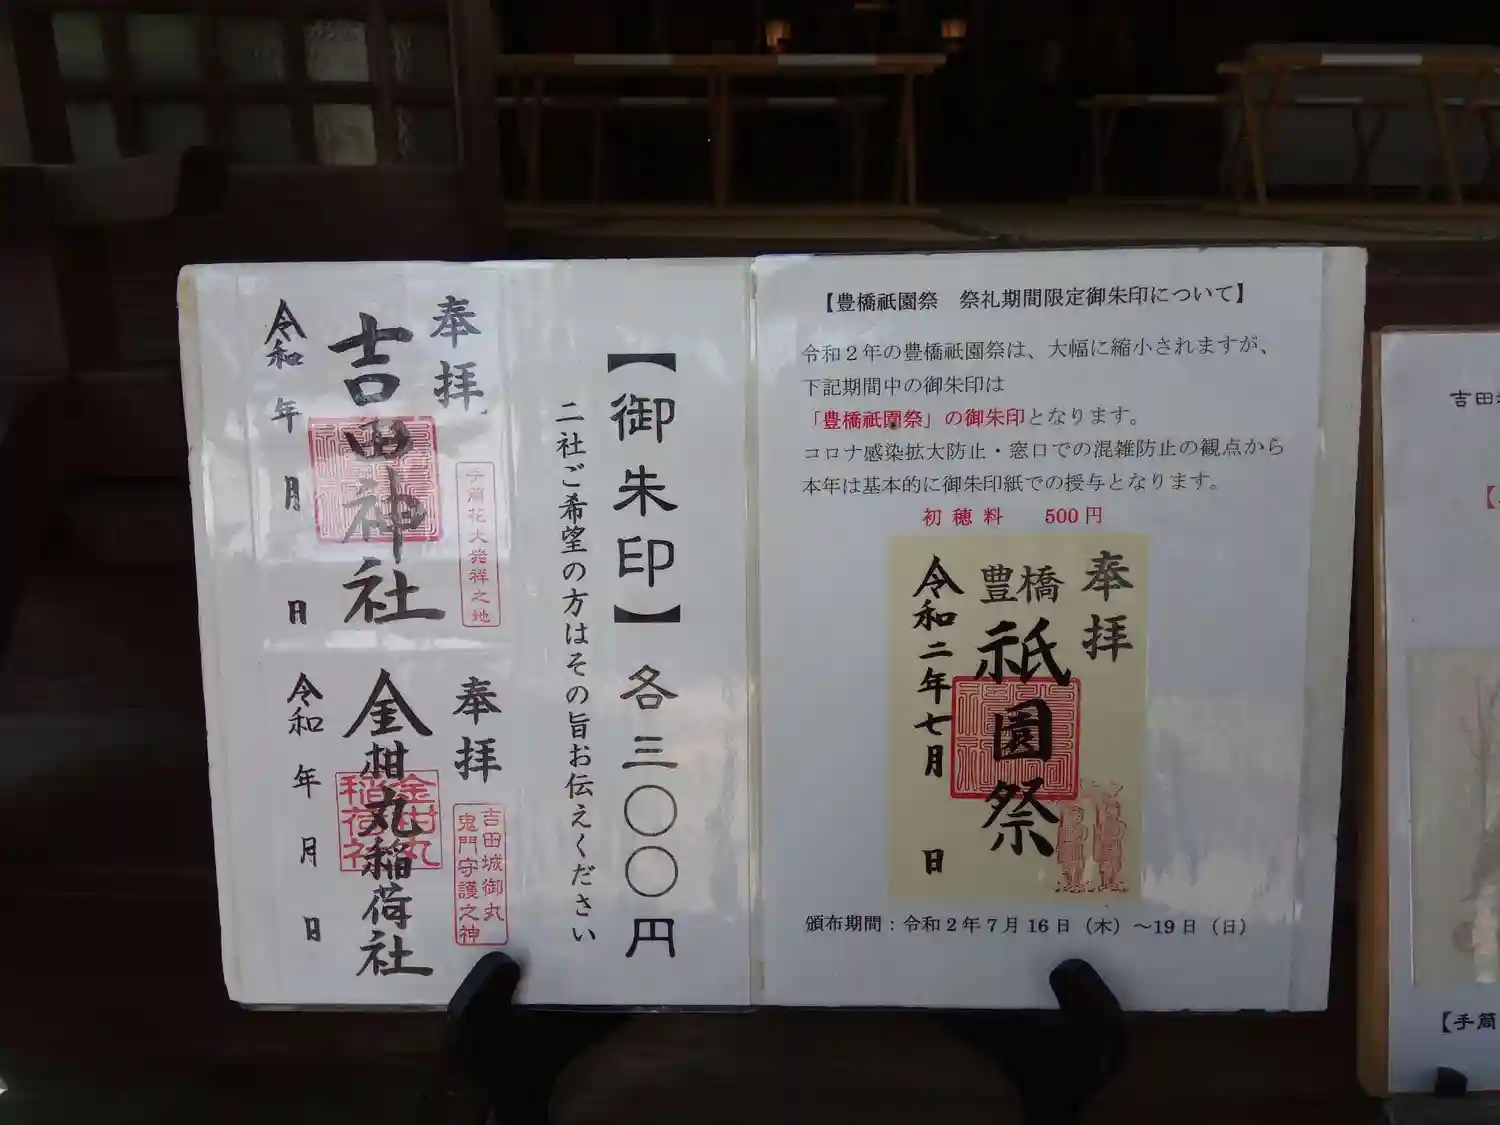 奉拝
吉田神社
令和 年 月 日
手筒花火発祥之地
奉拝
金柑丸稲荷社
令和 年 月 日
金柑丸稲荷社
吉田城御丸
鬼門守護之神
【御朱印】各三〇〇円
二社ご希望の方はその旨お伝えください
【豊橋祇園祭 祭礼期間限定御朱印について】
令和2年の豊橋祇園祭は、大幅に縮小されますが、
下記期間中の御朱印は
「豊橋祇園祭」の御朱印となります。
コロナ感染拡大防止・窓口での混雑防止の観点から
本年は基本的に御朱印紙での授与となります。
初穂料 500円
奉拝
豊橋
祇園祭
令和二年七月 日
頒布期間:令和2年7月16日(木)～19日(日)
吉田
【手筒